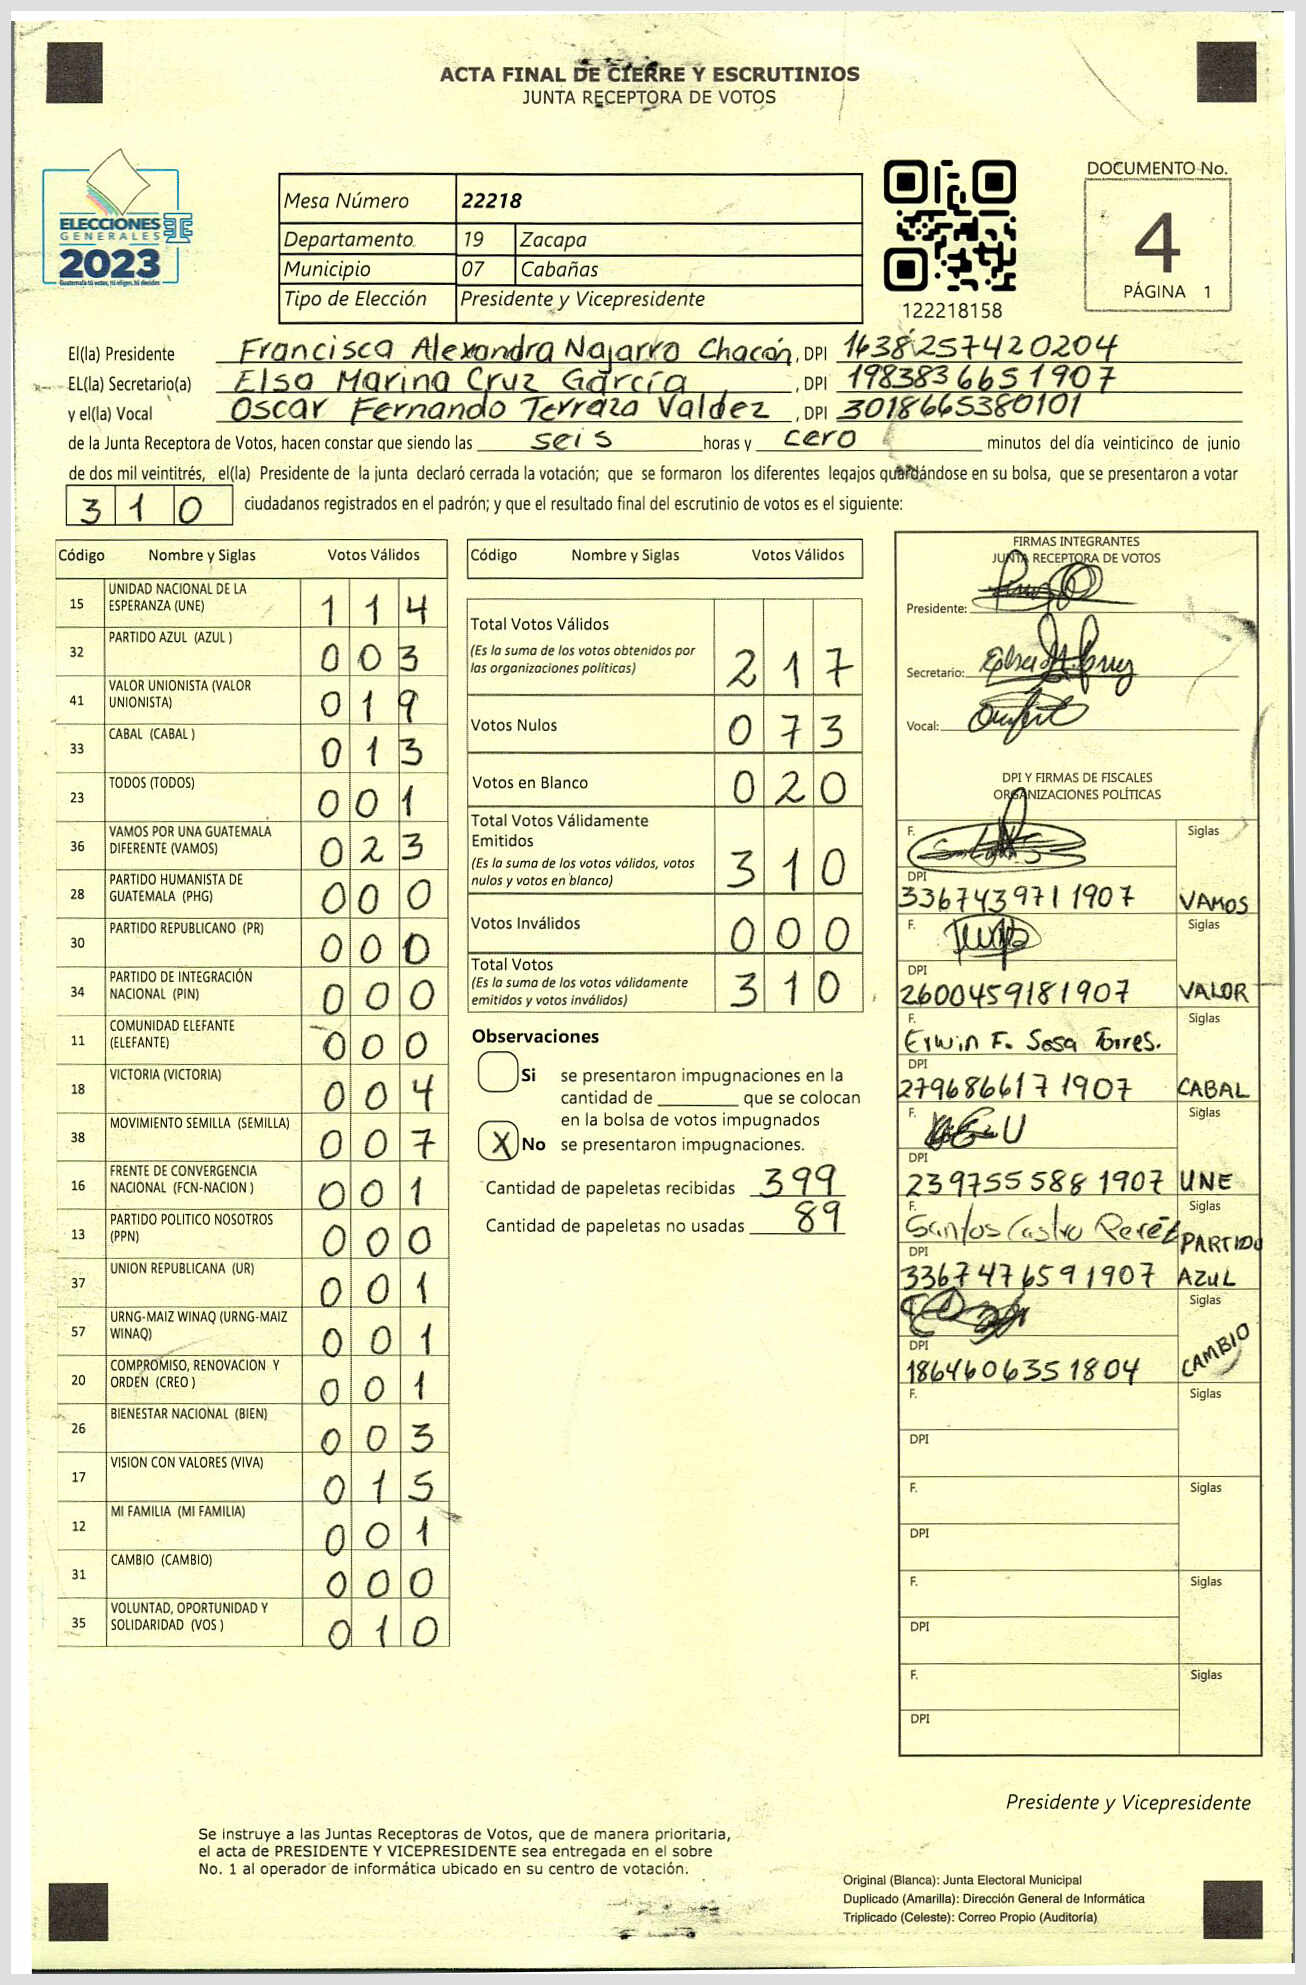 ACTA FINAL DE CIERRE Y ESCRUTINIOS
JUNTA RECEPTORA DE VOTOS
ELECCIONES
GENERALES
2023
Guatemala tú votas, tú eliges, tú decides
Mesa Número 22218
Departamento 19 Zacapa
Municipio 07 Cabañas
Tipo de Elección Presidente y Vicepresidente
122218158
DOCUMENTO No.
4
PÁGINA 1
El(la) Presidente Francisca Alexandra Najarro Chacón, DPI 1638257420204
EL(la) Secretario(a) Elsa Marina Cruz García, DPI 1983836651907
y el(la) Vocal Oscar Fernando Terraza Valdez, DPI 3018665380101
de la Junta Receptora de Votos, hacen constar que siendo las seis horas y cero minutos del día veinticinco de junio
de dos mil veintitrés, el(la) Presidente de la junta declaró cerrada la votación; que se formaron los diferentes legajos guardándose en su bolsa, que se presentaron a votar
310 ciudadanos registrados en el padrón; y que el resultado final del escrutinio de votos es el siguiente:
Código Nombre y Siglas Votos Válidos
15 UNIDAD NACIONAL DE LA ESPERANZA (UNE) 114
32 PARTIDO AZUL (AZUL ) 003
41 VALOR UNIONISTA (VALOR UNIONISTA) 019
33 CABAL (CABAL ) 013
23 TODOS (TODOS) 001
36 VAMOS POR UNA GUATEMALA DIFERENTE (VAMOS) 023
28 PARTIDO HUMANISTA DE GUATEMALA (PHG) 000
30 PARTIDO REPUBLICANO (PR) 000
34 PARTIDO DE INTEGRACIÓN NACIONAL (PIN) 000
11 COMUNIDAD ELEFANTE (ELEFANTE) 000
18 VICTORIA (VICTORIA) 004
38 MOVIMIENTO SEMILLA (SEMILLA) 007
16 FRENTE DE CONVERGENCIA NACIONAL (FCN-NACION ) 001
13 PARTIDO POLITICO NOSOTROS (PPN) 000
37 UNION REPUBLICANA (UR) 001
57 URNG-MAIZ WINAQ (URNG-MAIZ WINAQ) 001
20 COMPROMISO, RENOVACION Y ORDEN (CREO ) 001
26 BIENESTAR NACIONAL (BIEN) 003
17 VISION CON VALORES (VIVA) 015
12 MI FAMILIA (MI FAMILIA) 001
31 CAMBIO (CAMBIO) 000
35 VOLUNTAD, OPORTUNIDAD Y SOLIDARIDAD (VOS ) 010
Código Nombre y Siglas Votos Válidos
Total Votos Válidos
(Es la suma de los votos obtenidos por
las organizaciones políticas) 217
Votos Nulos 073
Votos en Blanco 020
Total Votos Válidamente
Emitidos
(Es la suma de los votos válidos, votos
nulos y votos en blanco) 310
Votos Inválidos 000
Total Votos
(Es la suma de los votos válidamente
emitidos y votos inválidos) 310
Observaciones
Si se presentaron impugnaciones en la
cantidad de ________ que se colocan
en la bolsa de votos impugnados
X No se presentaron impugnaciones.
Cantidad de papeletas recibidas 399
Cantidad de papeletas no usadas 89
FIRMAS INTEGRANTES
JUNTA RECEPTORA DE VOTOS
Presidente:
Secretario:
Vocal:
DPI Y FIRMAS DE FISCALES
ORGANIZACIONES POLÍTICAS
F. Siglas
DPI
3367439711907 VAMOS
F. Siglas
DPI
2600459181907 VALOR
F. Siglas
Erwin F. Sosa Torres.
DPI
2796866171907 CABAL
F. Siglas
DPI
2397555881907 UNE
F. Siglas
Santos Castro Peréz PARTIDO
DPI
3367476591907 AZUL
F. Siglas
DPI
1864606351804 CAMBIO
F. Siglas
DPI
F. Siglas
DPI
F. Siglas
DPI
F. Siglas
DPI
Presidente y Vicepresidente
Se instruye a las Juntas Receptoras de Votos, que de manera prioritaria,
el acta de PRESIDENTE Y VICEPRESIDENTE sea entregada en el sobre
No. 1 al operador de informática ubicado en su centro de votación.
Original (Blanca): Junta Electoral Municipal
Duplicado (Amarilla): Dirección General de Informática
Triplicado (Celeste): Correo Propio (Auditoría)